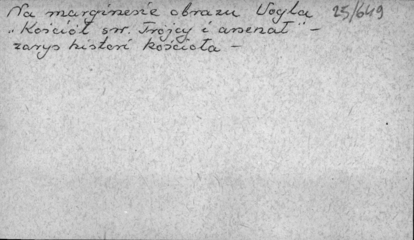 Na marginesie obrazu Vogla 25/649
"Kościół św. Trójcy i arsenał" –
zarys historii kościoła –